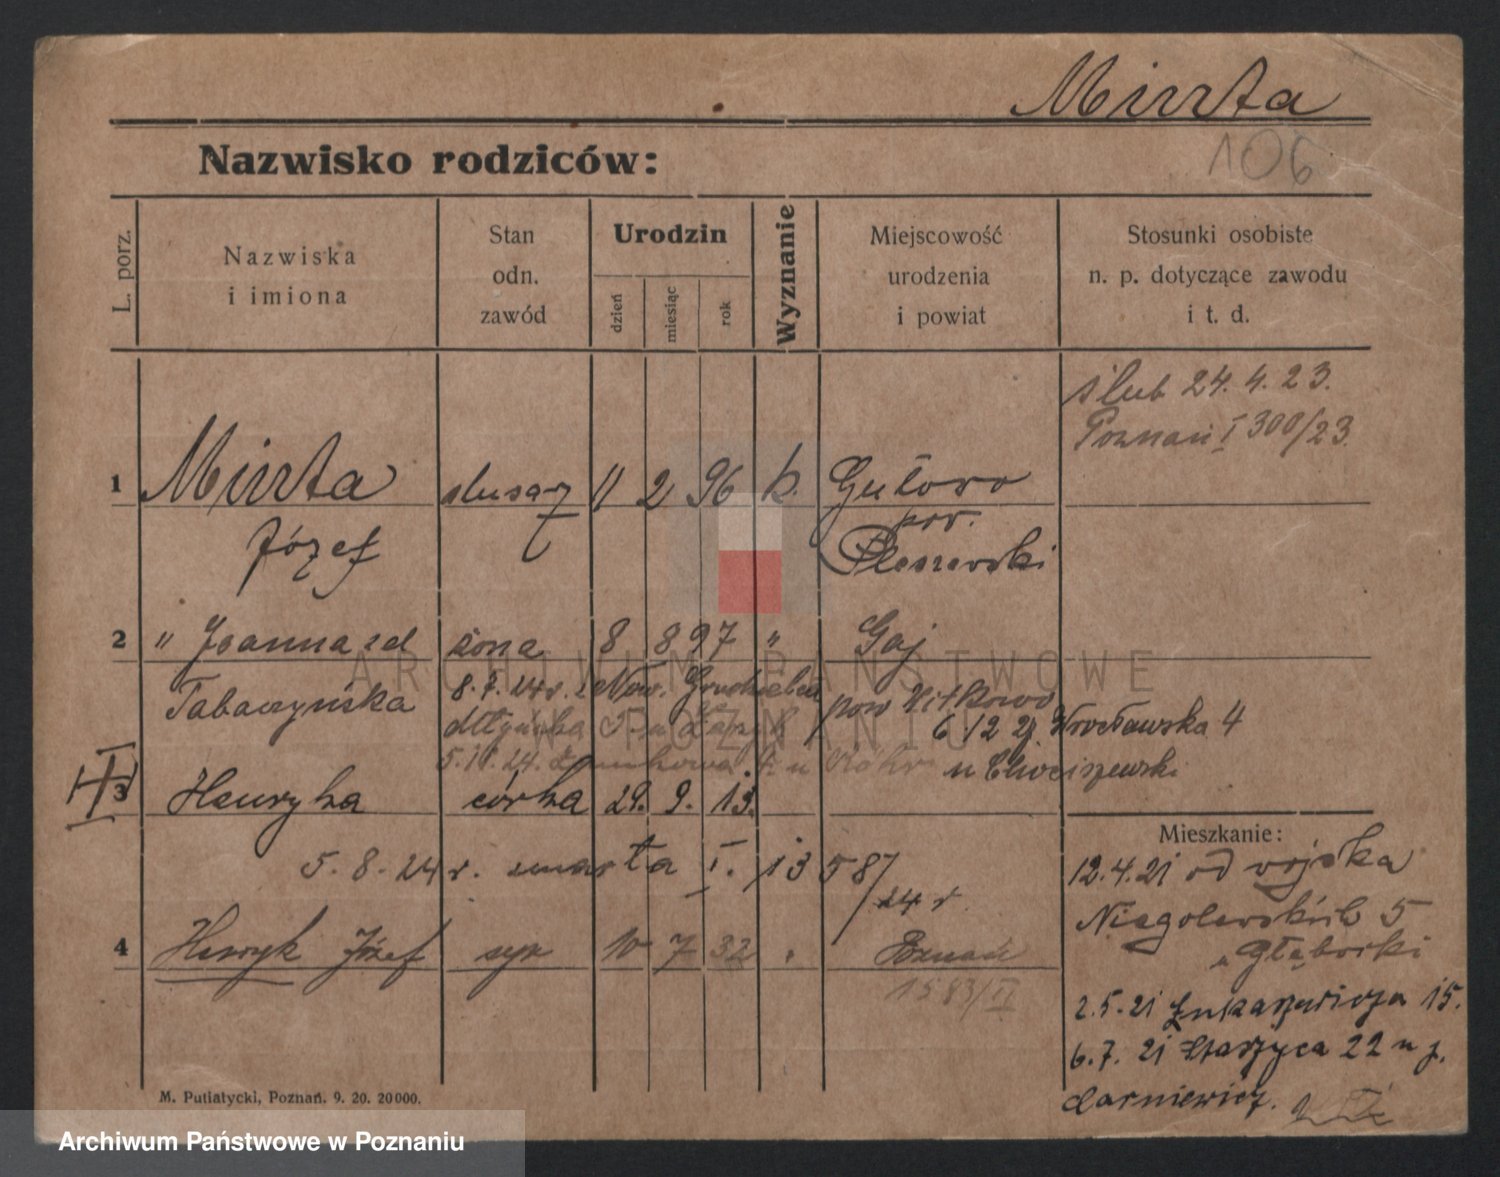 Mirrta
106
Nazwisko rodziców:
L. porz.
Nazwiska
i imiona
Stan
odn.
zawód
Urodzin
dzień
miesiąc
rok
Wyznanie
Miejscowość
urodzenia
i powiat
Stosunki osobiste
n. p. dotyczące zawodu
i t. d.
ślub 24. 4. 23.
Poznań I 300/23
1 Mirrta ślusarz 11 2 96 k. Gutowo
Józef pow. Pleszewski
2 " Joanna zd żona 8 8 97 " Gaj
Tabaczyńska 8.7.24 r. pow Witkowo
6 12 Wrocławska 4
5.11.24.
u Chociszewski
3 Henryka córka 29. 9. 13.
5. 8. 24 r. zmarła I. 13 587/24 r
4 Henryk Józef syn 10 7 32 Poznań
1583/II
Mieszkanie:
12.4.21 od wojska
5
u
2.5.21 Łukaszewicza 15.
6.7.21 Staszyca 22 u j.
M. Putiatycki, Poznań. 9. 20. 20000.
ARCHIWUM PAŃSTWOWE
W POZNANIU
Archiwum Państwowe w Poznaniu